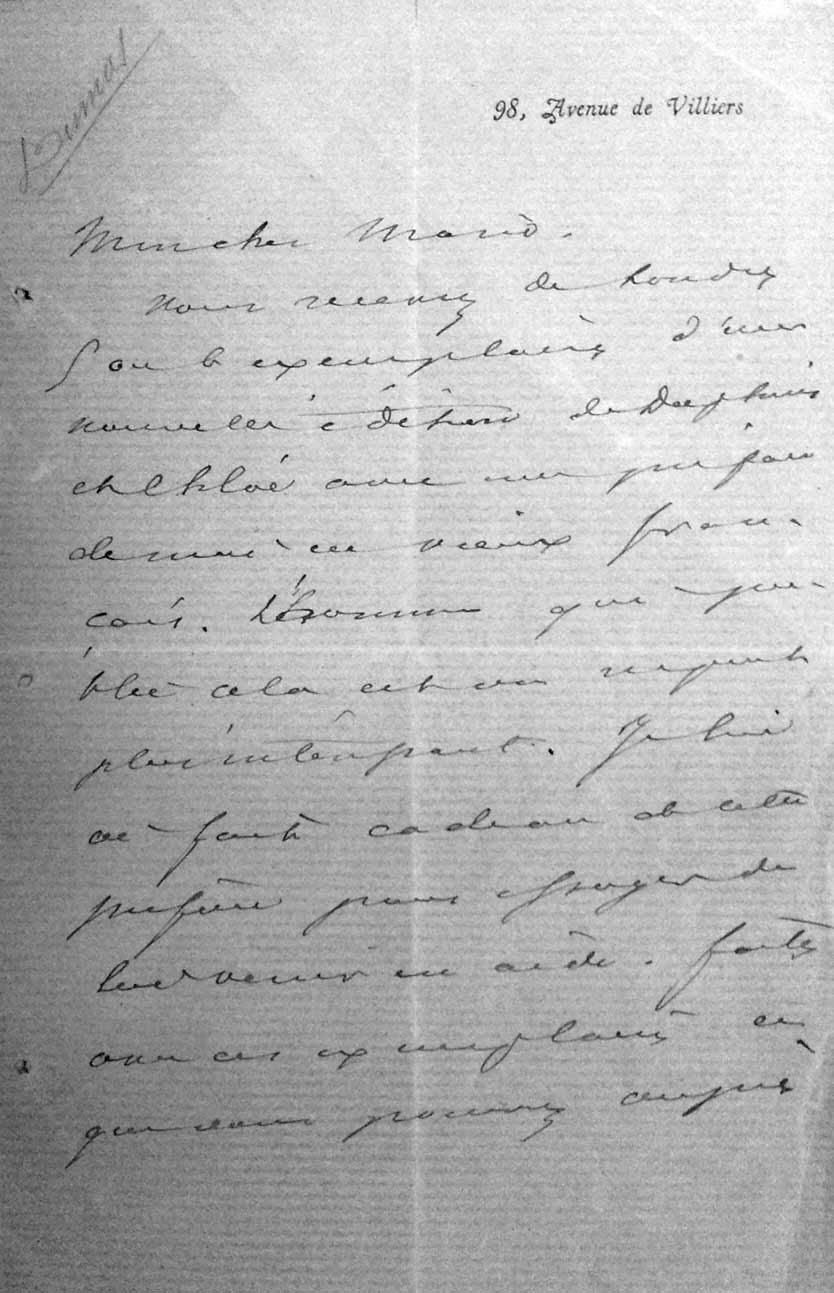 Dumas
98, Avenue de Villiers
Mon cher Mario.
vous recevez de Londres
5 ou 6 exemplaires d'une
nouvelle édition de Daphnis
et Chloé avec une préface
de moi en vieux fran-
cais. L'homme qui pu-
blie cela est un
plus intéressant. Je lui
ai fait cadeau de cette
préface pour essayer de
lui venir en aide. faites
avec ces exemplaires ce
que vous pourrez auprès